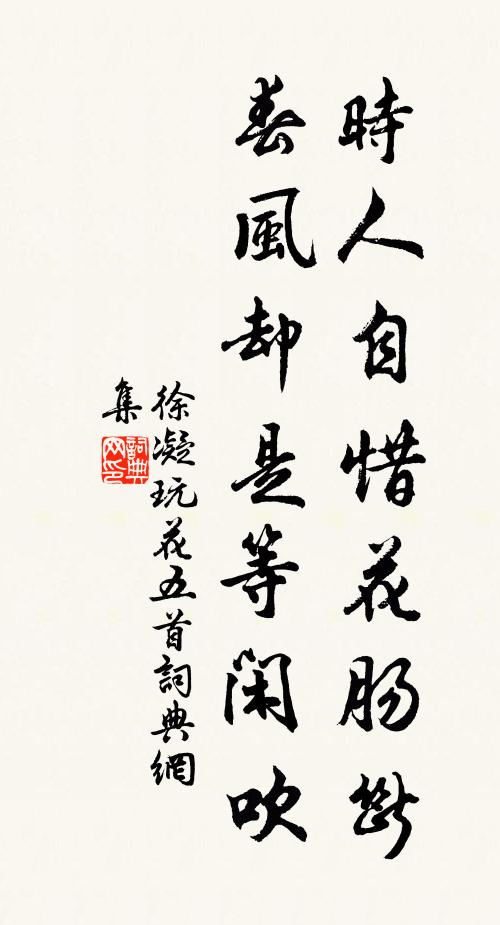 時人自惜花腸斷
春風却是等閑吹
徐凝玩花五首詞典網
集
詞典
网印